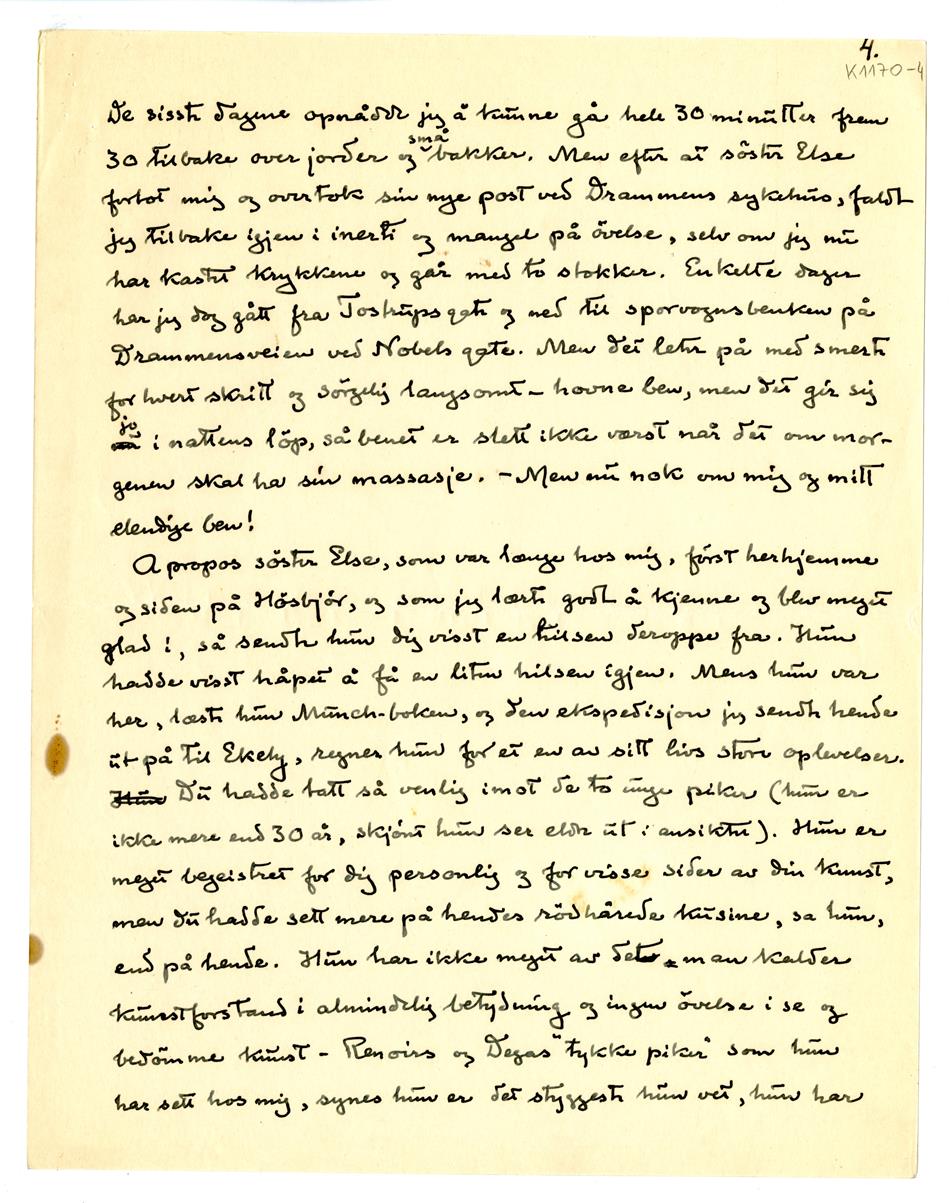 4.
K1170-4
De sisste dagene opnådde jeg å kunne gå hele 30 minutter frem
30 tilbake over jorder og små bakker. Men efter at söster Else
forlot mig og overtok sin nye post ved Drammens sykehus, faldt
jeg tilbake igjen i inerti og mangel på övelse, selv om jeg nu
har kastet krykkene og går med to stokker. Enkelte dager
har jeg dog gått fra Tostrupsgate og ned til sporvognsbenken på
Drammensveien ved Nobels gate. Men det leter på med smerte
for hvert skritt og sörgelig langsomt – hovne ben, men det gir sig
jo i nattens löp, så benet er slett ikke værst når det om mor-
genen skal ha sin massasje. – Men nu nok om mig og mitt
elendige ben!
A propos söster Else, som var længe hos mig, först herhjemme
og siden på Hösbjör, og som jeg lærte godt å kjenne og blev meget
glad i, så sendte hun dig visst en hilsen deroppe fra. Hun
hadde visst håpet å få en liten hilsen igjen. Mens hun var
her, læste hun Munch-boken, og den ekspedisjon jeg sendte hende
ut på til Ekely, regner hun for et en av sitt livs store oplevelser.
Hun Du hadde tatt så venlig imot de to unge piker (hun er
ikke mere end 30 år, skjönt hun ser eldre ut i ansiktet). Hun er
meget begeistret for dig personlig og for visse sider av din kunst,
men du hadde sett mere på hendes rödhårede kusine, sa hun,
end på hende. Hun har ikke meget av det man kalder
kunstforstand i almindelig betydning og ingen övelse i se og
bedömme kunst – Renoirs og Degas "tykke piker" som hun
har sett hos mig, synes hun er det styggeste hun vet, hun har